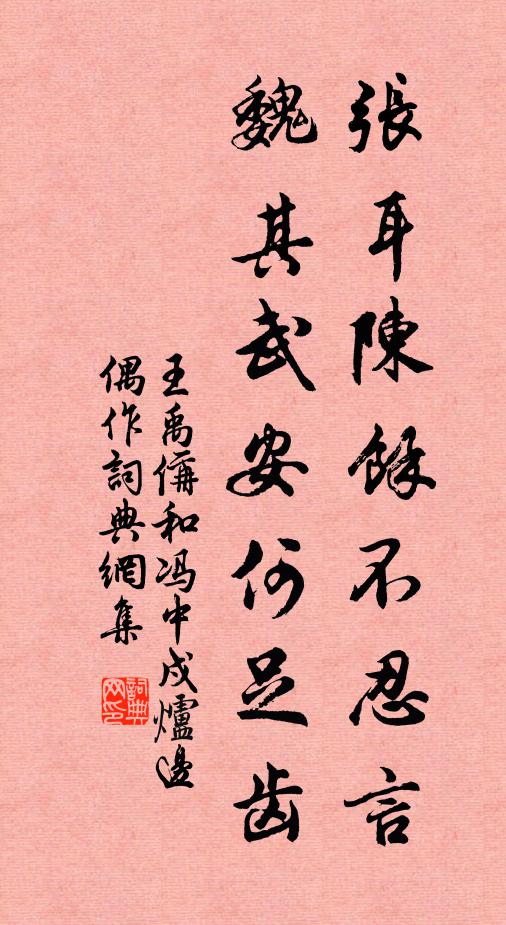 張耳陳餘不忍言
魏其武安何足齿
王禹偁和冯中戍爐邊
偶作詞典網集
詞典网印